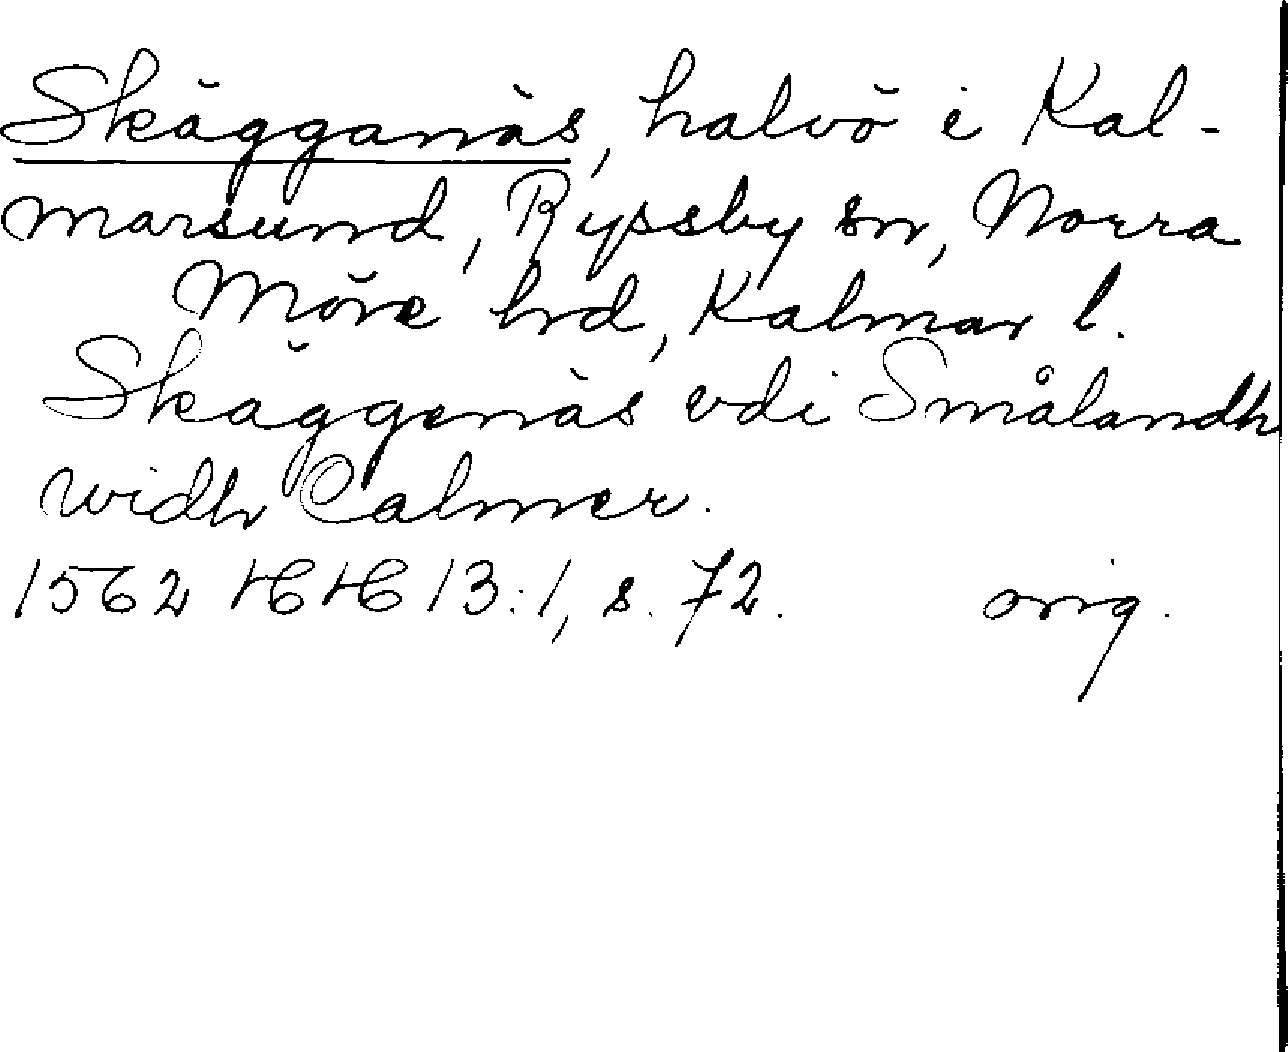 Skägganäs, halvö i Kal-
marsund, Ryssby sn, Norra
Möre hrd, Kalmar l.
Skäggenäs vdi Smålandh
widh Calmer.
1562 HH 13:1, s. 72. orig.